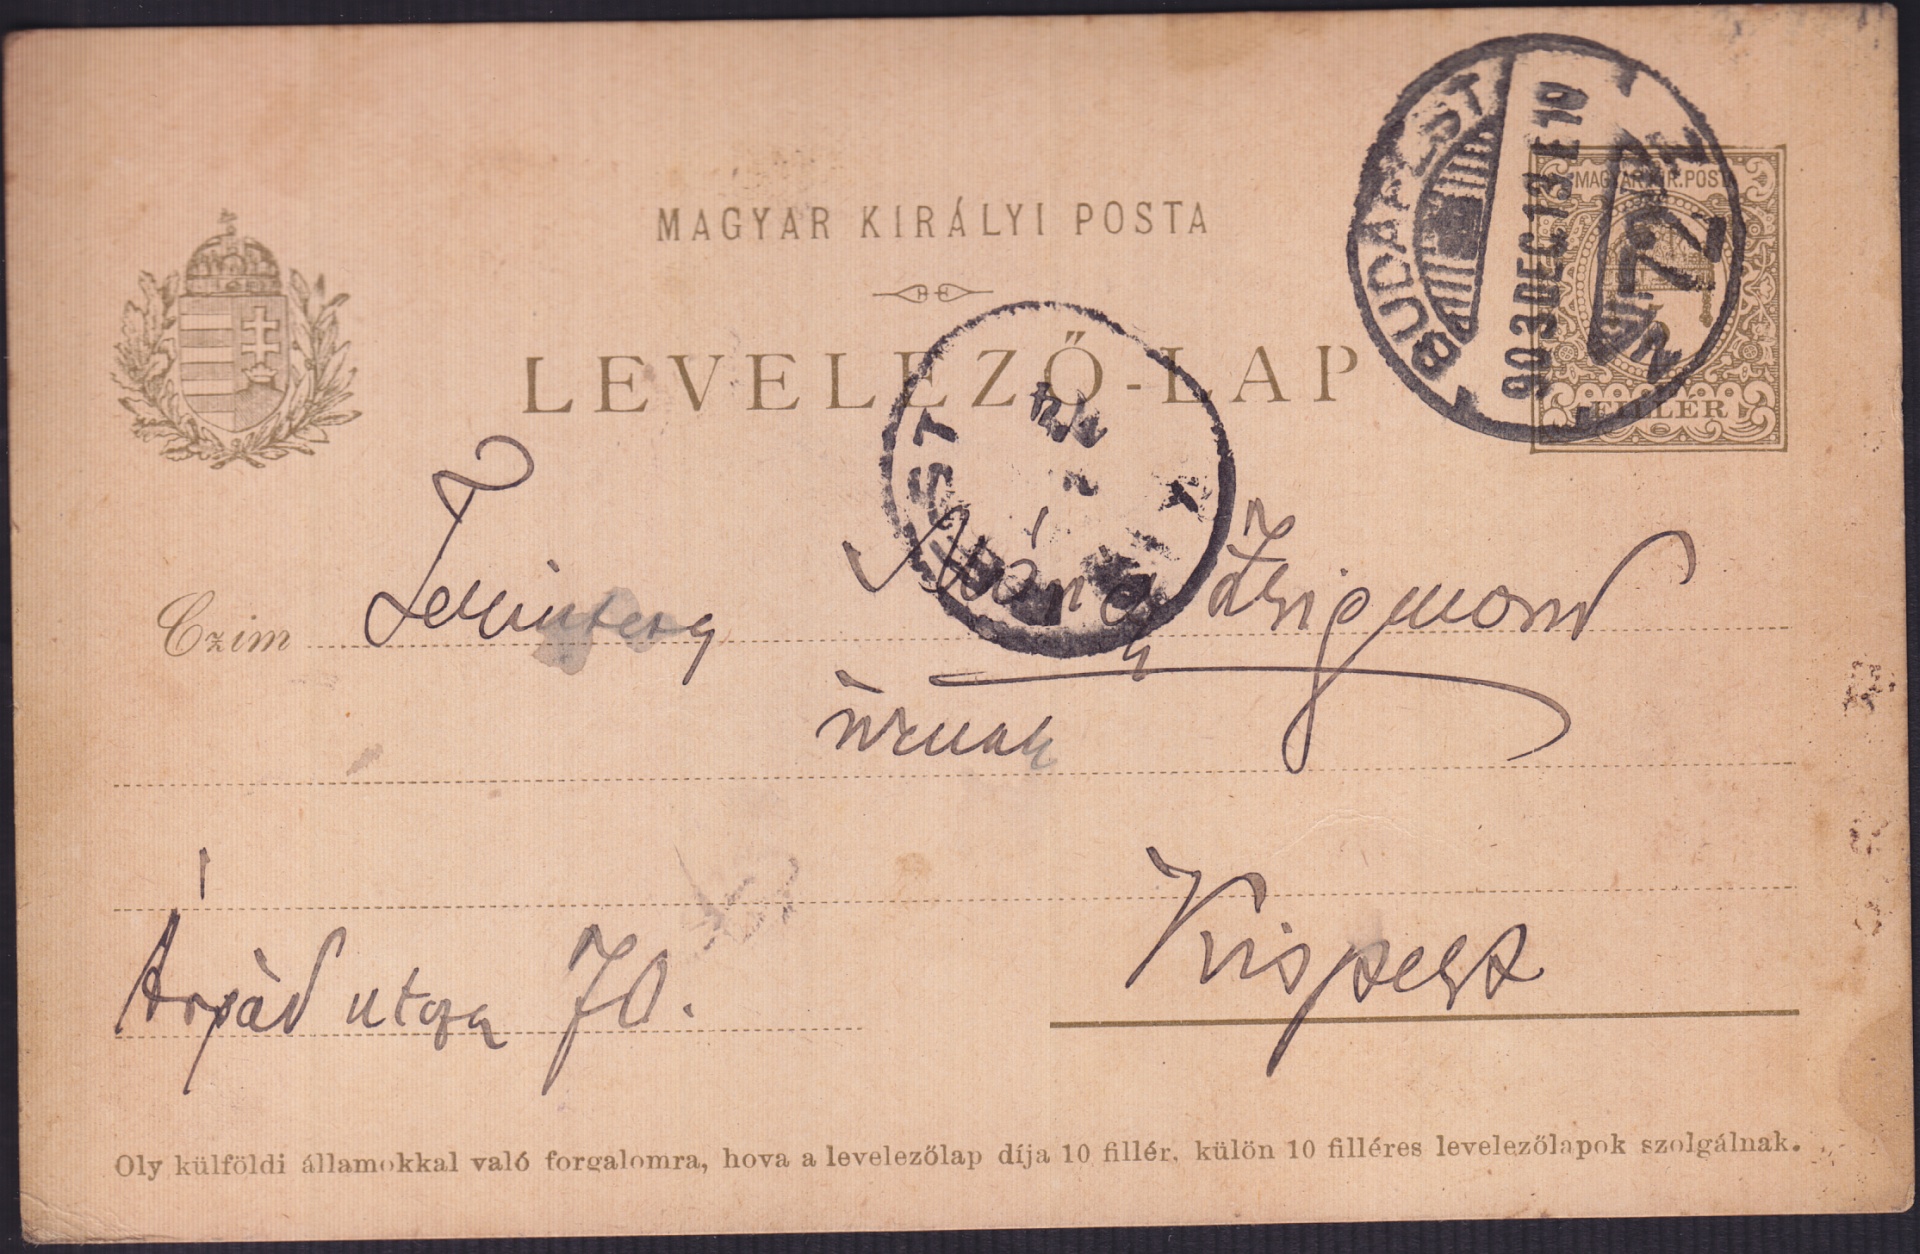 MAGYAR KIRÁLYI POSTA
LEVELEZŐ-LAP
BUDAPEST 72
903 DEC. 13 E 10
MAGYAR KIR. POSTA
FILLÉR
Czim Zsigmond
úrnak
Árpád utcza 70.
Kispest
Oly külföldi államokkal való forgalomra, hova a levelezőlap díja 10 fillér, külön 10 filléres levelezőlapok szolgálnak.